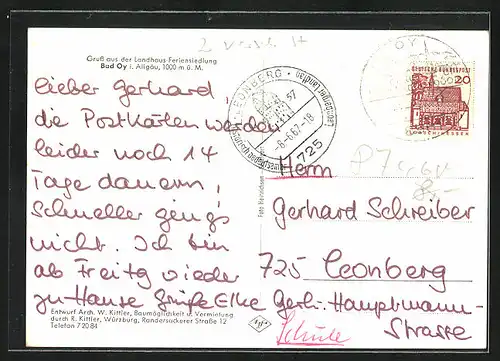 2 versch. A
Gruß aus der Landhaus Feriensiedlung
Bad Oy i. Allgäu, 1000 m ü. M.
lieber Gerhard,
die Postkarten werden
leider noch 14
Tage dauern,
Schneller geng's
nicht. Ich bin
ab Freitg wieder
zu Hause Grüße Elke
Entwurf Arch. W. Kittler, Baumöglichkeit u. Vermietung
durch R. Kittler, Würzburg, Randersackerer Straße 12
Telefon 7 20 84
LEONBERG
-8.-6.67-18
725
OY
DEUTSCHE BUNDESPOST
20
LORSCH/HESSEN
Herrn
Gerhard Schreiber
725 Leonberg
Gerh.-Hauptmann-
Strasse
Schule